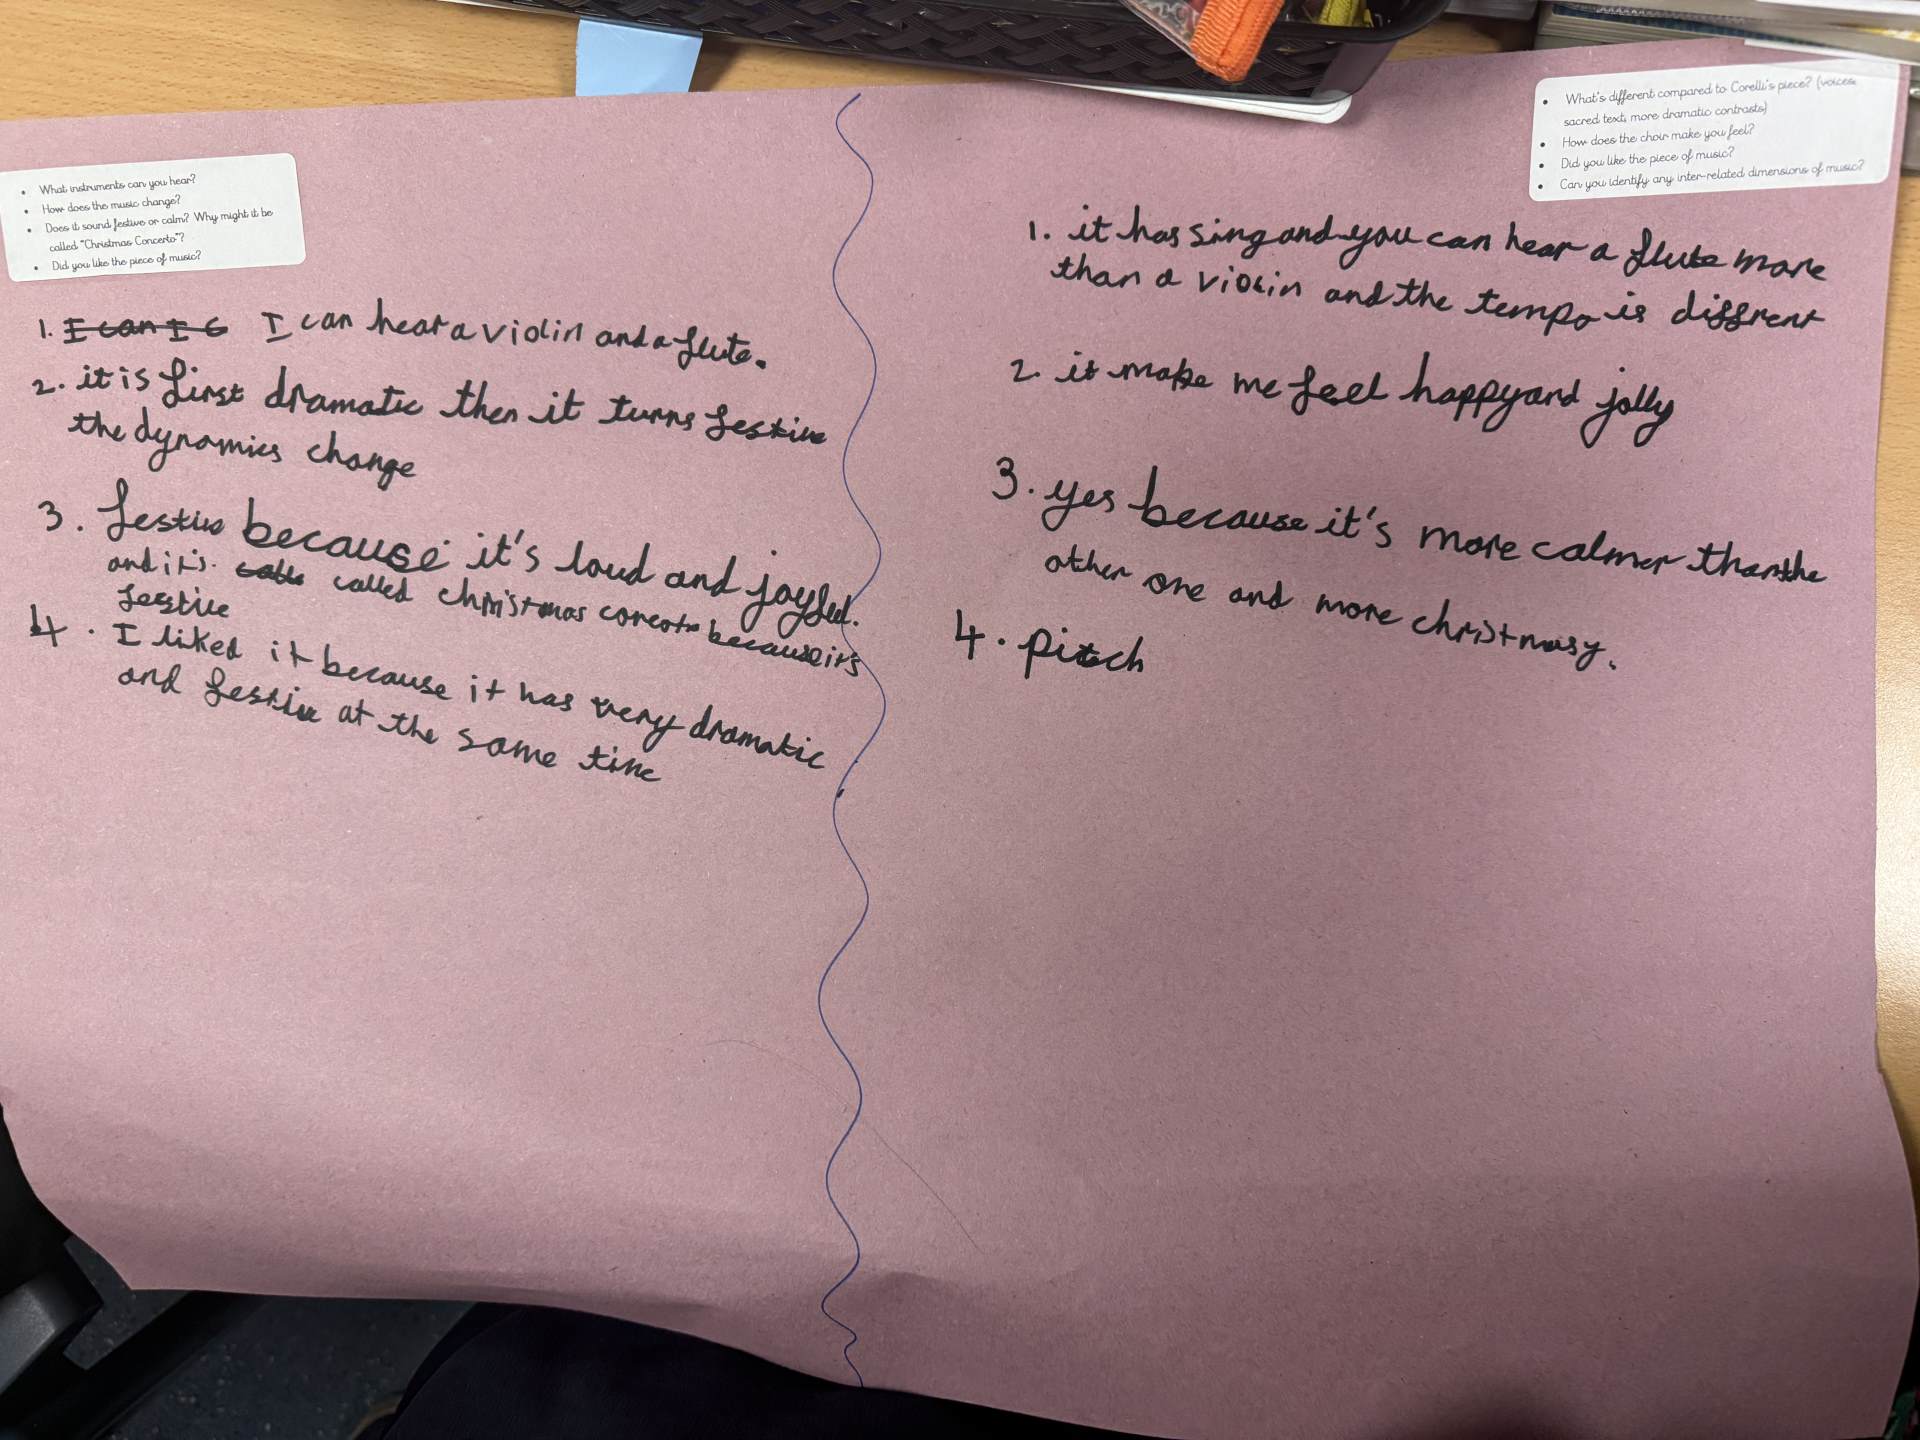 • What instruments can you hear?
• How does the music change?
• Does it sound festive or calm? Why might it be
called "Christmas Concerto"?
• Did you like the piece of music?
1. I can I c I can hear a violin and a flute.
2. it is first dramatic then it turns festive
the dynamics change
3. festive because it's loud and joyful.
and it's called christmas because it's
festive
4. I liked it because it has very dramatic
and festive at the same time
• What's different compared to Corelli's piece? (voices,
sacred text, more dramatic contrasts)
• How does the choir make you feel?
• Did you like the piece of music?
• Can you identify any inter-related dimensions of music?
1. it has sing and you can hear a flute more
than a violin and the tempo is diffrent
2. it make me feel happy and jolly
3. yes because it's more calmer than the
other one and more christmasy.
4. pitch